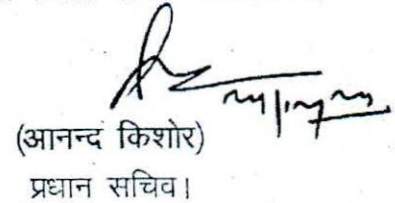 (आनन्द किशोर)
प्रधान सचिव।